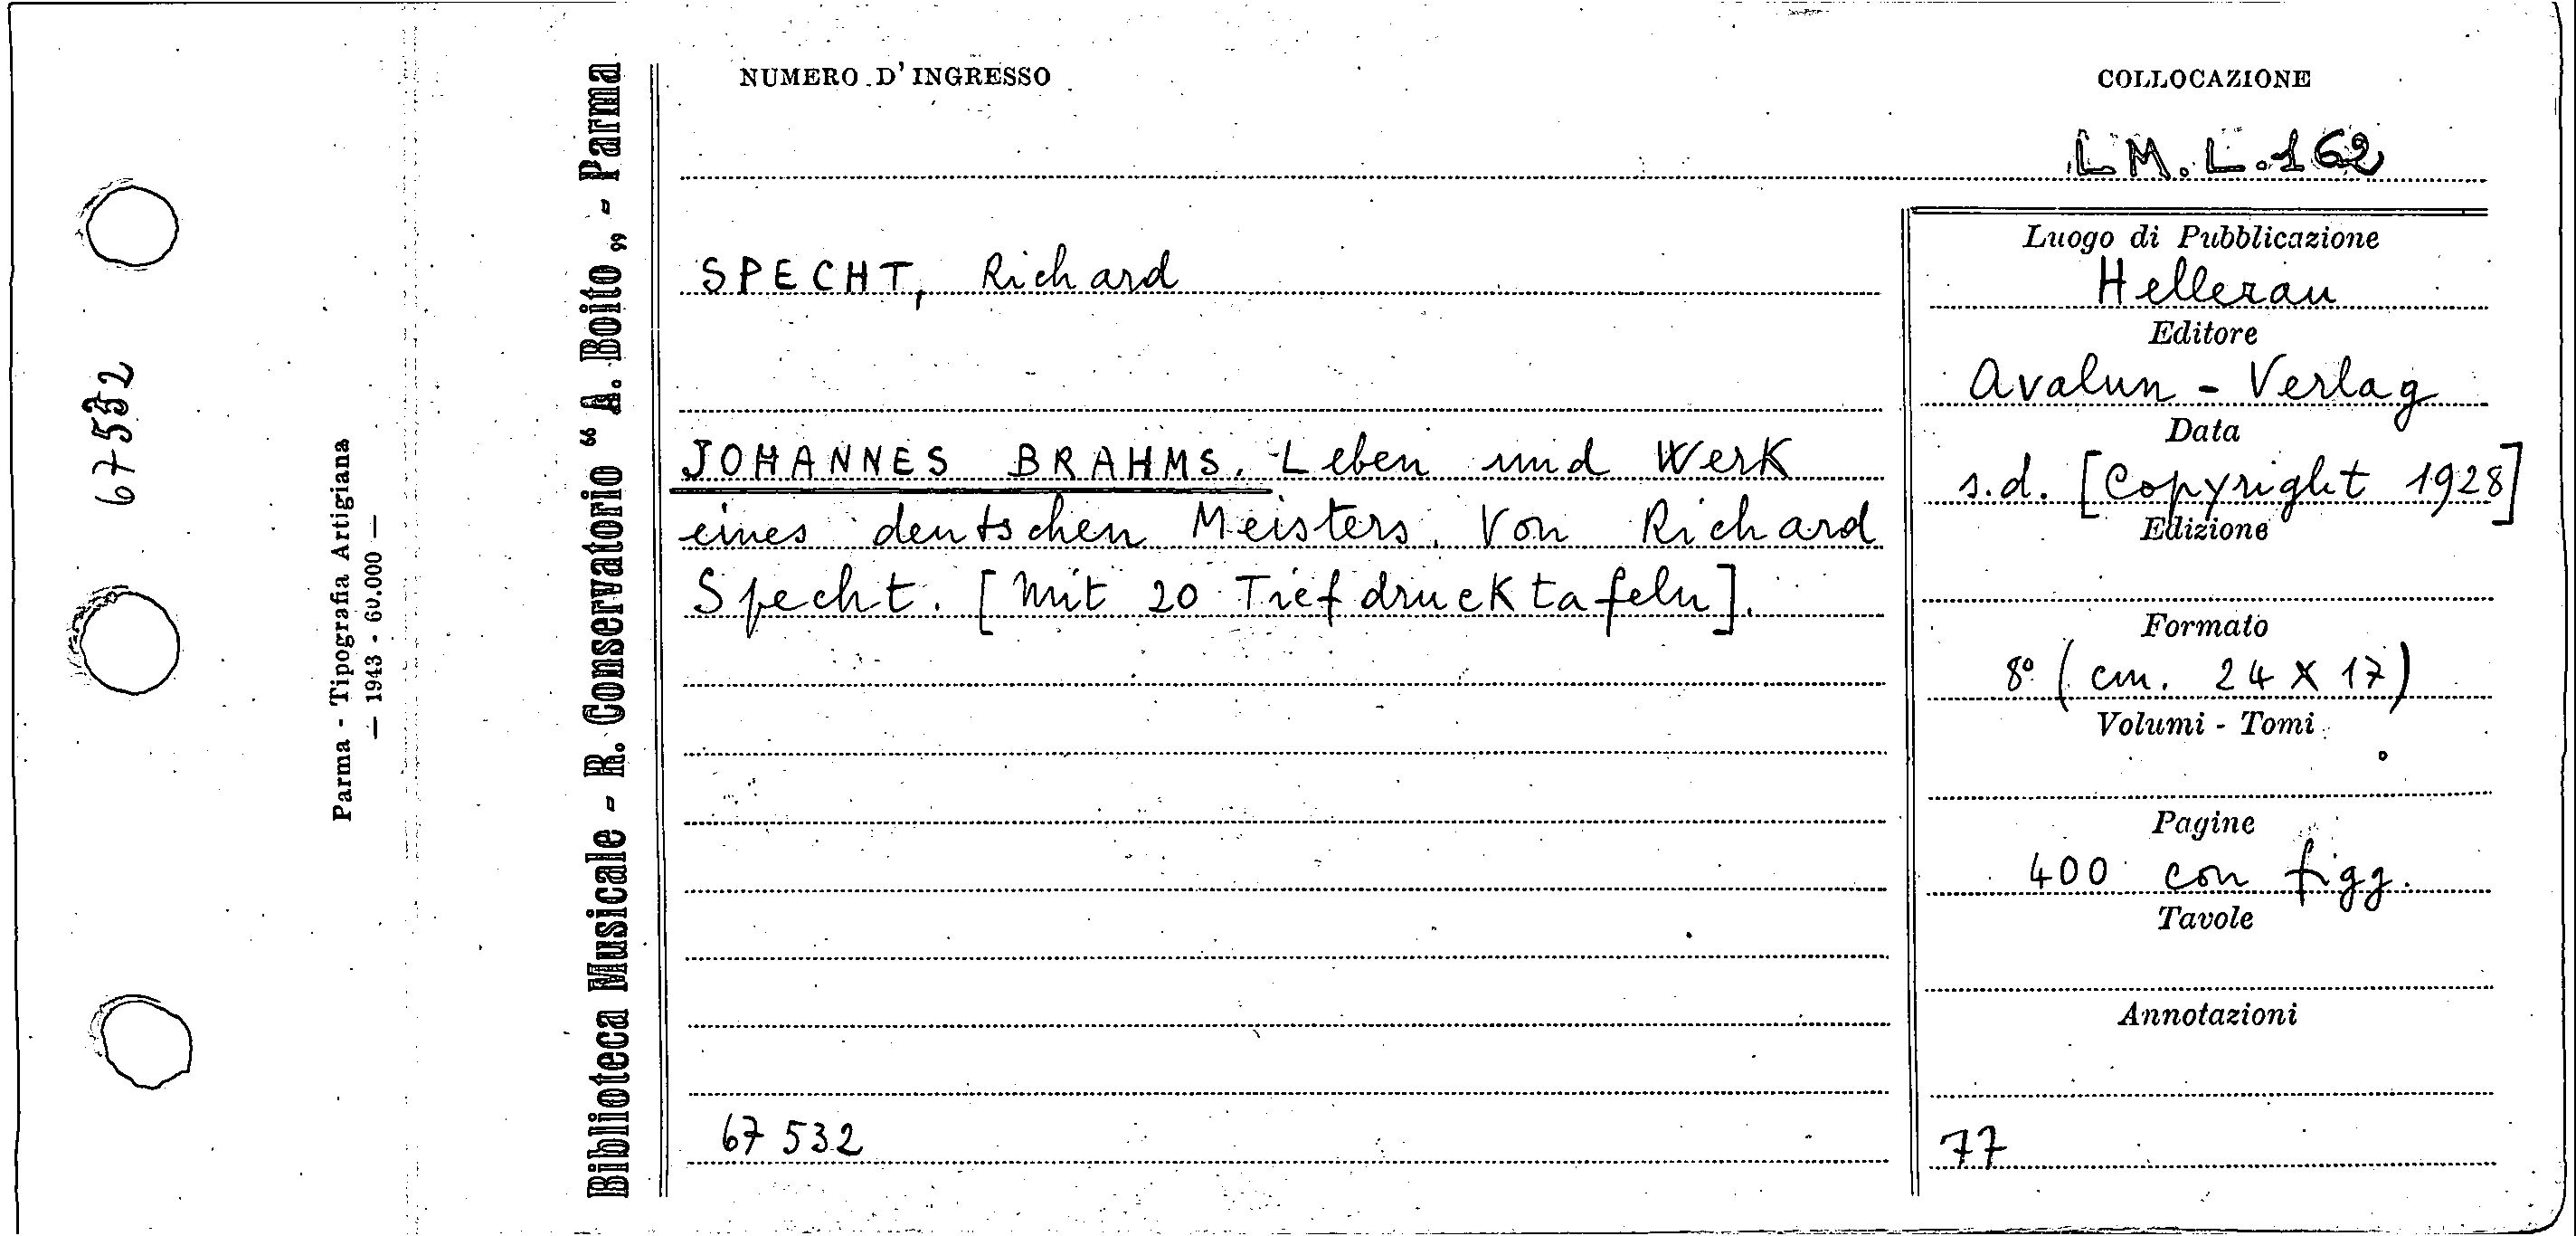 NUMERO D'INGRESSO
COLLOCAZIONE
LM. L. 162
SPECHT, Richard
JOHANNES BRAHMS. Leben und Werk
eines deutschen Meisters. Von Richard
Specht. [Mit 20 Tiefdrucktafeln].
67 532
Luogo di Pubblicazione
Hellerau
Editore
Avalun - Verlag
Data
s.d. [Copyright 1928]
Edizione
Formato
8° (cm. 24 X 17)
Volumi - Tomi
Pagine
400 con figg.
Tavole
Annotazioni
77
Biblioteca Musicale - R. Conservatorio “A. Boito„ - Parma
Parma - Tipografia Artigiana
— 1943 - 60.000 —
67532